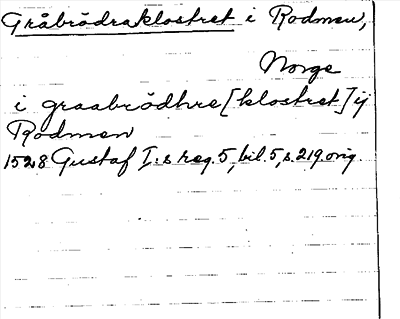 Gråbrödraklostret i Rodmen,
Norge
i graabrödhre [klostret] ij
Rodmen
1528 Gustaf I:s reg. 5, bil. 5, s. 219 orig.